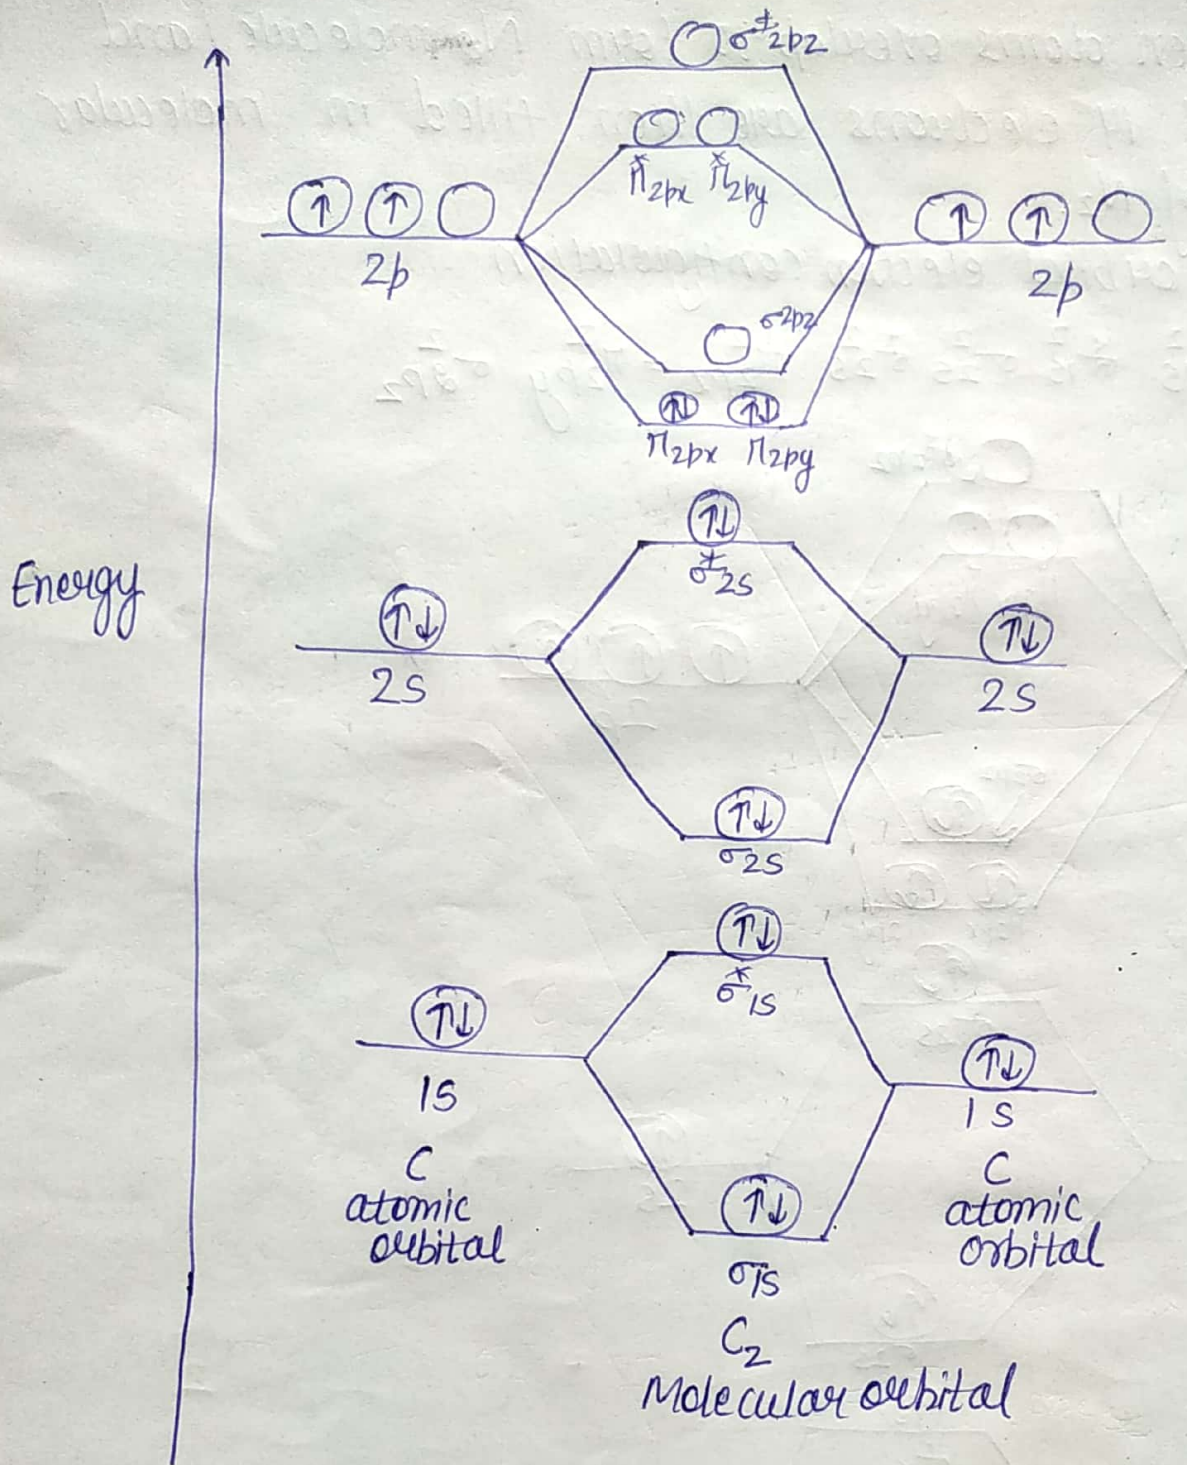 σ*2pz
π*2px π*2py
2p
2p
σ2pz
π2px π2py
σ*2s
Energy
2s
2s
σ2s
σ*1s
1s
1s
C
atomic
orbital
C
atomic
orbital
σ1s
C2
Molecular orbital